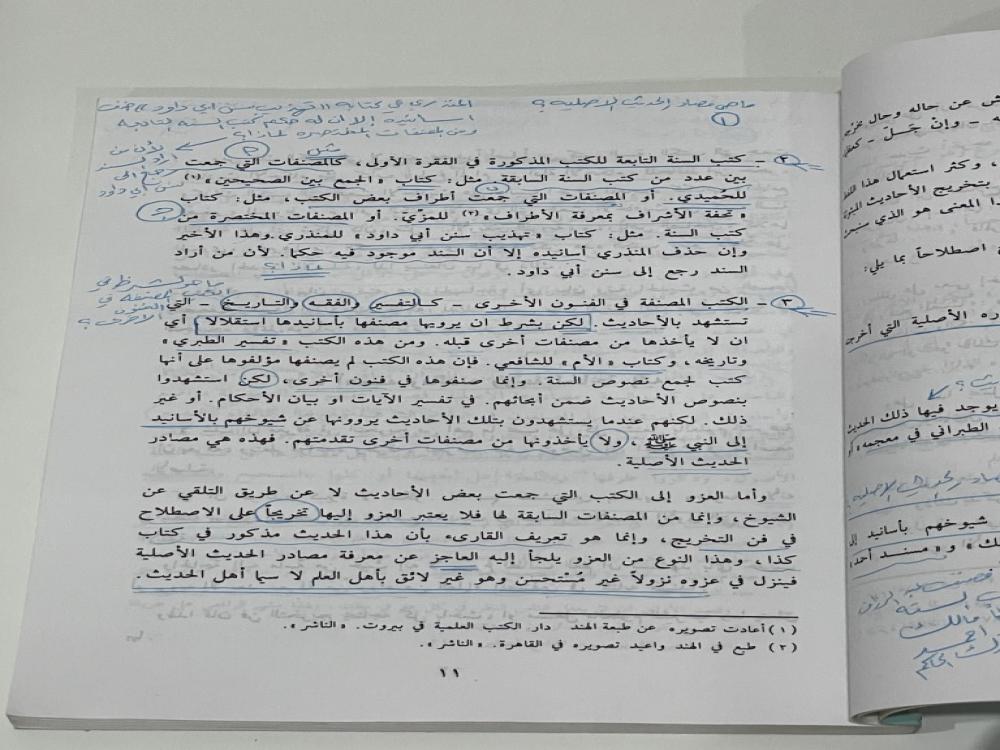 ماهي مصادر الحديث الاصلية ؟
المنذري في كتابه "تهذيب سنن ابي داود" حذف
اسانيده إلا ان له حكم كتب السنة التابعة
ومن المصنفات المختصره لماذا؟
لأن من
اراد السند
رجع إلى
سنن أبي داود
مثل
٢ ـ كتب السنة التابعة للكتب المذكورة في الفقرة الأولى، كالمصنفات التي جمعت
بين عدد من كتب السنة السابقة مثل: كتاب «الجمع بين الصحيحين» (١)
للحُميدي. أو المصنفات التي جمعت أطراف بعض الكتب، مثل: كتاب
«تحفة الأشراف بمعرفة الأطراف» (٢) للمزيّ. أو المصنفات المختصرة من
كتب السنة. مثل: كتاب «تهذيب سنن أبي داود» للمنذري. وهذا الأخير
وإن حذف المنذري أسانيده إلا أن السند موجود فيه حكماً. لأن من أراد
السند رجع إلى سنن أبي داود.
لماذا؟
ما هو شرط في
الكتب المصنفة في
الفنون
الاخرى ؟
٣ ـ الكتب المصنفة في الفنون الأخرى ـ كالتفسير والفقه والتاريخ ـ التي
تستشهد بالأحاديث. لكن بشرط ان يرويها مصنفها بأسانيدها استقلالاً أي
ان لا يأخذها من مصنفات أخرى قبله. ومن هذه الكتب «تفسير الطبري»
وتاريخه، وكتاب «الأم» للشافعي. فإن هذه الكتب لم يصنفها مؤلفوها على أنها
كتب لجمع نصوص السنة. وإنما صنفوها في فنون أخرى، لكن استشهدوا
بنصوص الأحاديث ضمن أبحاثهم. في تفسير الآيات او بيان الأحكام. أو غير
ذلك. لكنهم عندما يستشهدون بتلك الأحاديث يروونها عن شيوخهم بالأسانيد
إلى النبي ﷺ، ولا يأخذونها من مصنفات أخرى تقدمتهم. فهذه هي مصادر
الحديث الأصلية.
وأما العزو إلى الكتب التي جمعت بعض الأحاديث لا عن طريق التلقي عن
الشيوخ، وإنما من المصنفات السابقة لها فلا يعتبر العزو إليها تخريجاً على الاصطلاح
في فن التخريج، وإنما هو تعريف القارىء بأن هذا الحديث مذكور في كتاب
كذا، وهذا النوع من العزو يلجأ إليه العاجز عن معرفة مصادر الحديث الأصلية
فينزل في عزوه نزولاً غير مُستحسن وهو غير لائق بأهل العلم لا سيما أهل الحديث.
(١) أعادت تصويره عن طبعة الهند دار الكتب العلمية في بيروت. «الناشر».
(٢) طبع في الهند واعيد تصويره في القاهرة. «الناشر».
١١
ش عن حاله وحال
ـ وإنْ جَـلّ ـ
، وكثر استعمال هذا اللفظ
بتخريج الأحاديث
ا المعنى هو الذي
اصطلاحاً بما يلي:
ره الأصلية التي أخرجته
يوجد فيها ذلك الحديث
الطبراني في معجمه، أو
شيوخهم بأسانيد إلى
ك» و «مسند أحمد
مالك
احمد
الحاكم